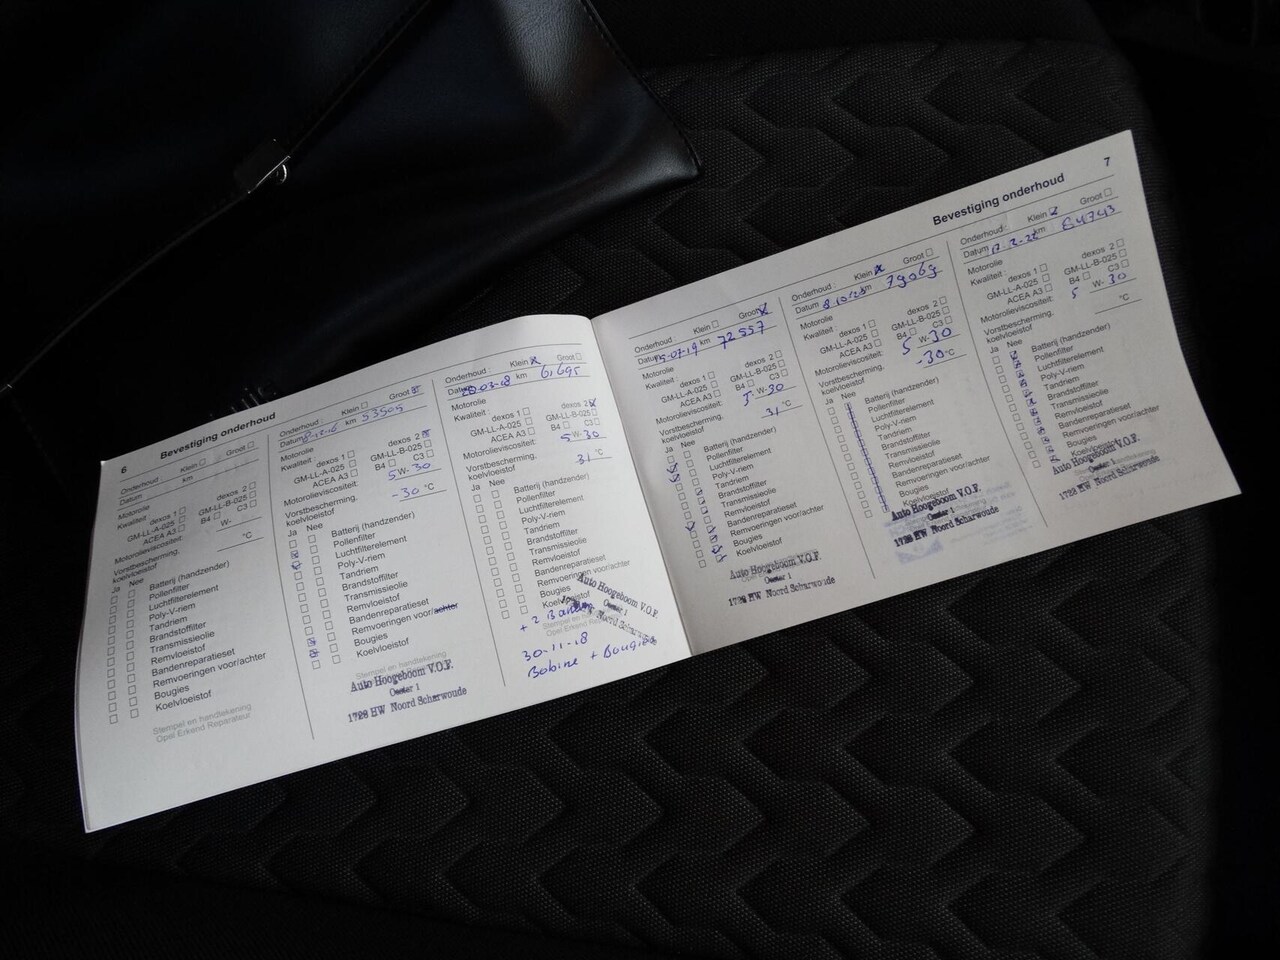 6
Bevestiging onderhoud
Onderhoud
Klein
Groot
Datum
km
Motorolie
Kwaliteit :
dexos 1
dexos 2
GM-LL-A-025
GM-LL-B-025
ACEA A3
B4
C3
Motorolieviscositeit:
W-
Vorstbescherming,
koelvloeistof
°C
Ja Nee
Batterij (handzender)
Pollenfilter
Luchtfilterelement
Poly-V-riem
Tandriem
Brandstoffilter
Transmissieolie
Remvloeistof
Bandenreparatieset
Remvoeringen voor/achter
Bougies
Koelvloeistof
Stempel en handtekening
Opel Erkend Reparateur
Onderhoud :
Klein
Groot
Datum
km 53505
Motorolie
Kwaliteit :
dexos 1
dexos 2
GM-LL-A-025
GM-LL-B-025
ACEA A3
B4
C3
Motorolieviscositeit:
5 W- 30
Vorstbescherming,
koelvloeistof
-30 °C
Ja Nee
Batterij (handzender)
Pollenfilter
Luchtfilterelement
Poly-V-riem
Tandriem
Brandstoffilter
Transmissieolie
Remvloeistof
Bandenreparatieset
Remvoeringen voor/achter
Bougies
Koelvloeistof
Stempel en handtekening
Auto Hoogeboom V.O.F.
Oester 1
1723 HW Noord Scharwoude
Onderhoud :
Klein
Groot
Datum 28-03-18 km 61695
Motorolie
Kwaliteit :
dexos 1
dexos 2
GM-LL-A-025
GM-LL-B-025
ACEA A3
B4
C3
Motorolieviscositeit:
5 W- 30
Vorstbescherming,
koelvloeistof
31 °C
Ja Nee
Batterij (handzender)
Pollenfilter
Luchtfilterelement
Poly-V-riem
Tandriem
Brandstoffilter
Transmissieolie
Remvloeistof
Bandenreparatieset
Remvoeringen voor/achter
Bougies
Koelvloeistof
Auto Hoogeboom V.O.F.
Noord Scharwoude
+ 2 Banden
30-11-18
Bobine + Bougies
7
Bevestiging onderhoud
Onderhoud :
Klein
Groot
Datum 15-07-19 km 72557
Motorolie
Kwaliteit :
dexos 1
dexos 2
GM-LL-A-025
GM-LL-B-025
ACEA A3
B4
C3
Motorolieviscositeit:
5 W- 30
Vorstbescherming,
koelvloeistof
31 °C
Ja Nee
Batterij (handzender)
Pollenfilter
Luchtfilterelement
Poly-V-riem
Tandriem
Brandstoffilter
Transmissieolie
Remvloeistof
Bandenreparatieset
Remvoeringen voor/achter
Bougies
Koelvloeistof
Auto Hoogeboom V.O.F.
Oester 1
1723 HW Noord Scharwoude
Onderhoud :
Klein
Groot
Datum
km 79069
Motorolie
Kwaliteit :
dexos 1
dexos 2
GM-LL-A-025
GM-LL-B-025
ACEA A3
B4
C3
Motorolieviscositeit:
5 W- 30
Vorstbescherming,
koelvloeistof
-30 °C
Ja Nee
Batterij (handzender)
Pollenfilter
Luchtfilterelement
Poly-V-riem
Tandriem
Brandstoffilter
Transmissieolie
Remvloeistof
Bandenreparatieset
Remvoeringen voor/achter
Bougies
Koelvloeistof
Auto Hoogeboom V.O.F.
Oester 1
1723 HW Noord Scharwoude
Onderhoud :
Klein
Groot
Datum
km
Motorolie
Kwaliteit :
dexos 1
dexos 2
GM-LL-A-025
GM-LL-B-025
ACEA A3
B4
C3
Motorolieviscositeit:
5 W- 30
Vorstbescherming,
koelvloeistof
°C
Ja Nee
Batterij (handzender)
Pollenfilter
Luchtfilterelement
Poly-V-riem
Tandriem
Brandstoffilter
Transmissieolie
Remvloeistof
Bandenreparatieset
Remvoeringen voor/achter
Bougies
Koelvloeistof
Auto Hoogeboom V.O.F.
Oester 1
1723 HW Noord Scharwoude